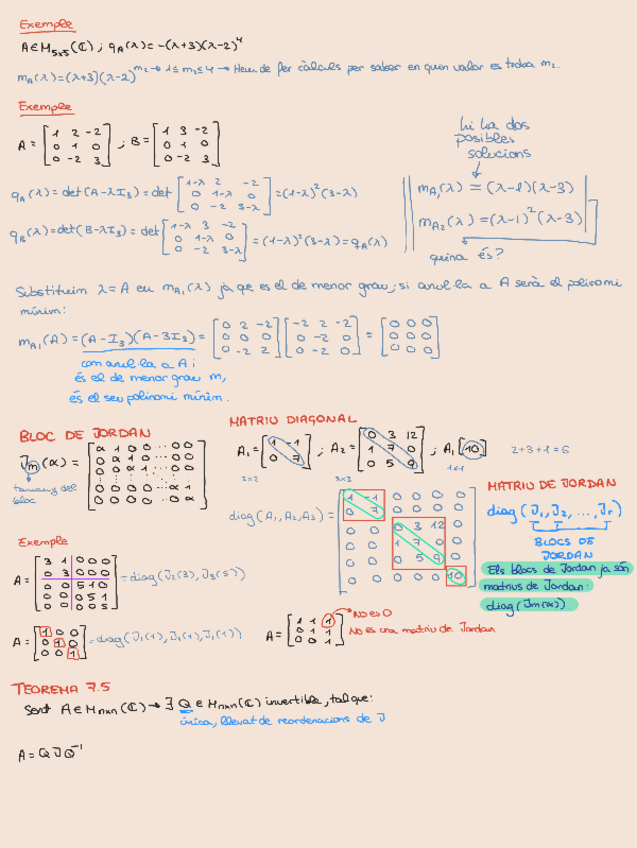 Exemple
A ∈ M₅ₓ₅(ℂ) ; q_A(λ) = -(λ+3)(λ-2)⁴
m_A(λ) = (λ+3)(λ-2)^m₂ → 1 ≤ m₂ ≤ 4 → Hem de fer càlculs per saber en quin valor es troba m₂.
Exemple
A = [1 2 -2; 0 1 0; 0 -2 3] ; B = [1 3 -2; 0 1 0; 0 -2 3]
hi ha dos
posibles
solucions
q_A(λ) = det(A-λI₃) = det [1-λ 2 -2; 0 1-λ 0; 0 -2 3-λ] = (1-λ)²(3-λ)
m_A₁(λ) = (λ-1)(λ-3)
q_B(λ) = det(B-λI₃) = det [1-λ 3 -2; 0 1-λ 0; 0 -2 3-λ] = (1-λ)²(3-λ) = q_A(λ)
m_A₂(λ) = (λ-1)²(λ-3)
quina és?
Substituim λ=A en m_A₁(λ) ja que es el de menor grau; si anul·la a A serà el polinomi
mínim:
m_A₁(A) = (A-I₃)(A-3I₃) = [0 2 -2; 0 0 0; 0 -2 2] [-2 2 -2; 0 -2 0; 0 -2 0] = [0 0 0; 0 0 0; 0 0 0]
com anul·la a A i
és el de menor grau m,
és el seu polinomi mínim.
BLOC DE JORDAN
J_m(α) = [α 1 0 0 ... 0 0; 0 α 1 0 ... 0 0; 0 0 α 1 ... 0 0; 0 0 0 0 ... α 1; 0 0 0 0 ... 0 α]
tamany del
bloc
MATRIU DIAGONAL
A₁ = [1 -1; 0 7] ; A₂ = [0 3 12; 1 7 0; 0 5 9] ; A₁ [10] 2+3+1=6
2x2 3x3 1x1
diag(A₁,A₂,A₃) = [1 -1 0 0 0 0; 0 7 0 0 0 0; 0 0 0 3 12 0; 0 0 1 7 0 0; 0 0 0 5 9 0; 0 0 0 0 0 10]
MATRIU DE JORDAN
diag(J₁, J₂, ..., Jr)
BLOCS DE
JORDAN
Els blocs de Jordan ja són
matrius de Jordan:
diag(Jm(α))
Exemple
A = [3 1 0 0 0; 0 3 0 0 0; 0 0 5 1 0; 0 0 0 5 1; 0 0 0 0 5] = diag(J₂(3), J₃(5))
A = [1 0 0; 0 1 0; 0 0 1] = diag(J₁(1), J₁(1), J₁(1))
A = [1 1 1; 0 1 1; 0 0 1] → No es 0
No és una matriu de Jordan
TEOREMA 7.5
Sent A ∈ Mₙₓₙ(ℂ) → ∃ Q ∈ Mₙₓₙ(ℂ) invertible, tal que:
única, llevat de reordenacions de J
A = Q J Q⁻¹